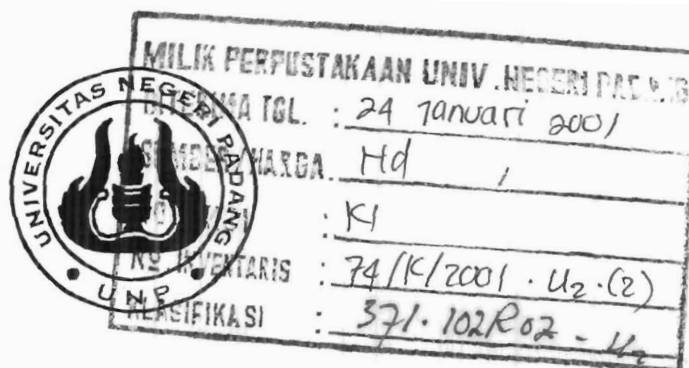 MILIK PERPUSTAKAAN UNIV. NEGERI PADANG
DITERIMA TGL. : 24 Januari 2001
SUMBER/HARGA Hd /
: KI
No. INVENTARIS : 74/K/2001 . U2 . (2)
KLASIFIKASI : 371.102 R02 - U2
UNIVERSITAS NEGERI PADANG
UNP